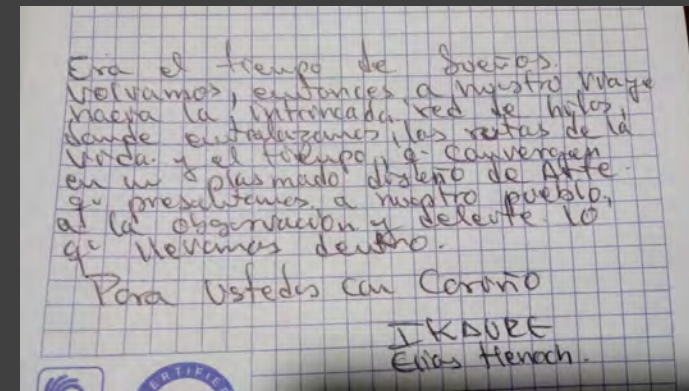 Era el tiempo de Sueños.
volvamos, entonces a nuestro viaje
hacia la intrincada red de hilos,
donde entrelazamos, las rutas de la
vida. y el tiempo, q- convergen
en un plasmado diseño de Arte.
q- presentamos a nuestro pueblo,
a la observación y deleite lo
q- llevamos dentro.
Para Ustedes con Cariño
IKADURE
Elías Henoch.
CERTIFIE